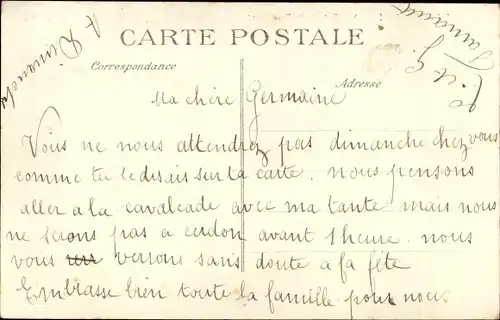 CARTE POSTALE
Correspondance
Adresse
Ma chère Germaine
Vous ne nous attendrez pas dimanche chez vous
comme tu le disais sur ta carte. nous pensons
aller a la cavalcade avec ma tante mais nous
ne serons pas a cerdon avant 1 heure. nous
vous verrons sans doute a la fête
Embrasse bien toute la famille pour nous
A Dimanche
J. et G.